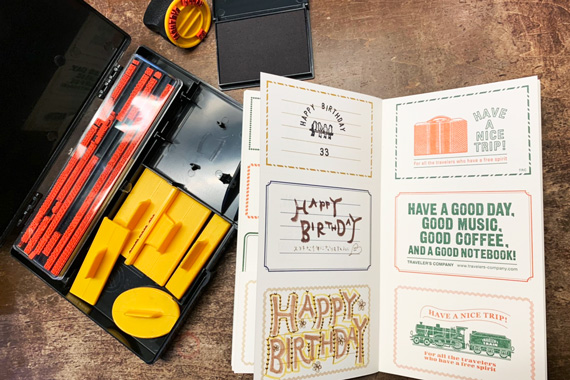 HAPPY BIRTHDAY
33
HAPPY
BIRTHDAY
HAPPY
BIRTHDAY
HAVE
A
NICE
TRIP!
For all the travelers who have a free spirit
HAVE A GOOD DAY,
GOOD MUSIC,
GOOD COFFEE,
AND A GOOD NOTEBOOK!
TRAVELER'S COMPANY www.travelers-company.com
HAVE A NICE TRIP!
For all the travelers
who have a free spirit